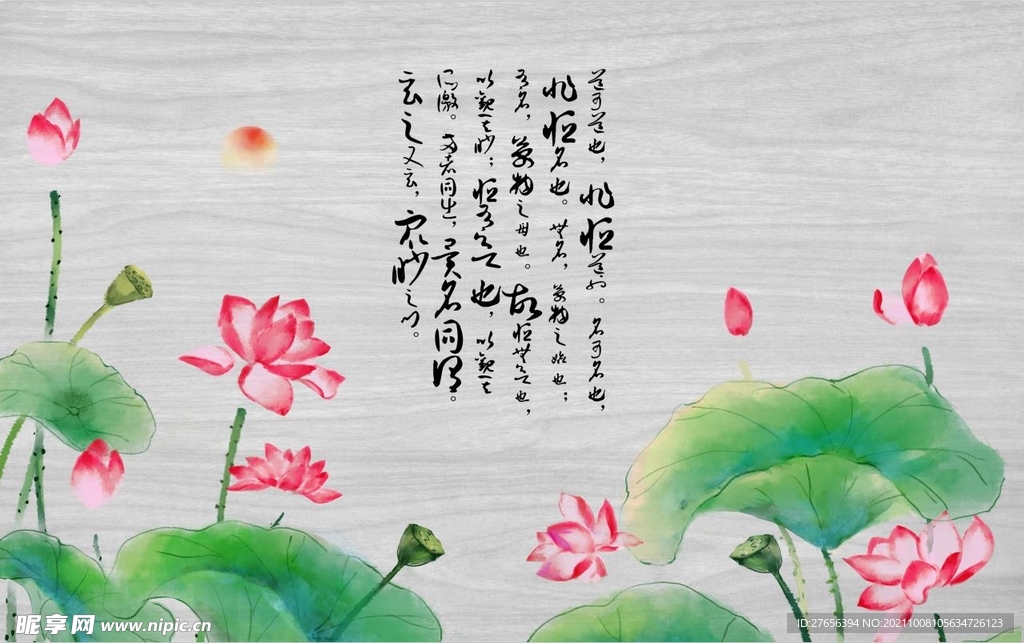 道可道也，非恒道也。名可名也，
非恒名也。無名，萬物之始也；
有名，萬物之母也。故恒無欲也，
以觀其眇；恒有欲也，以觀其
所徼。两者同出，異名同謂。
玄之又玄，眾眇之门。
昵享网 www.nipic.cn
ID:27656394 NO:20211008105634726123